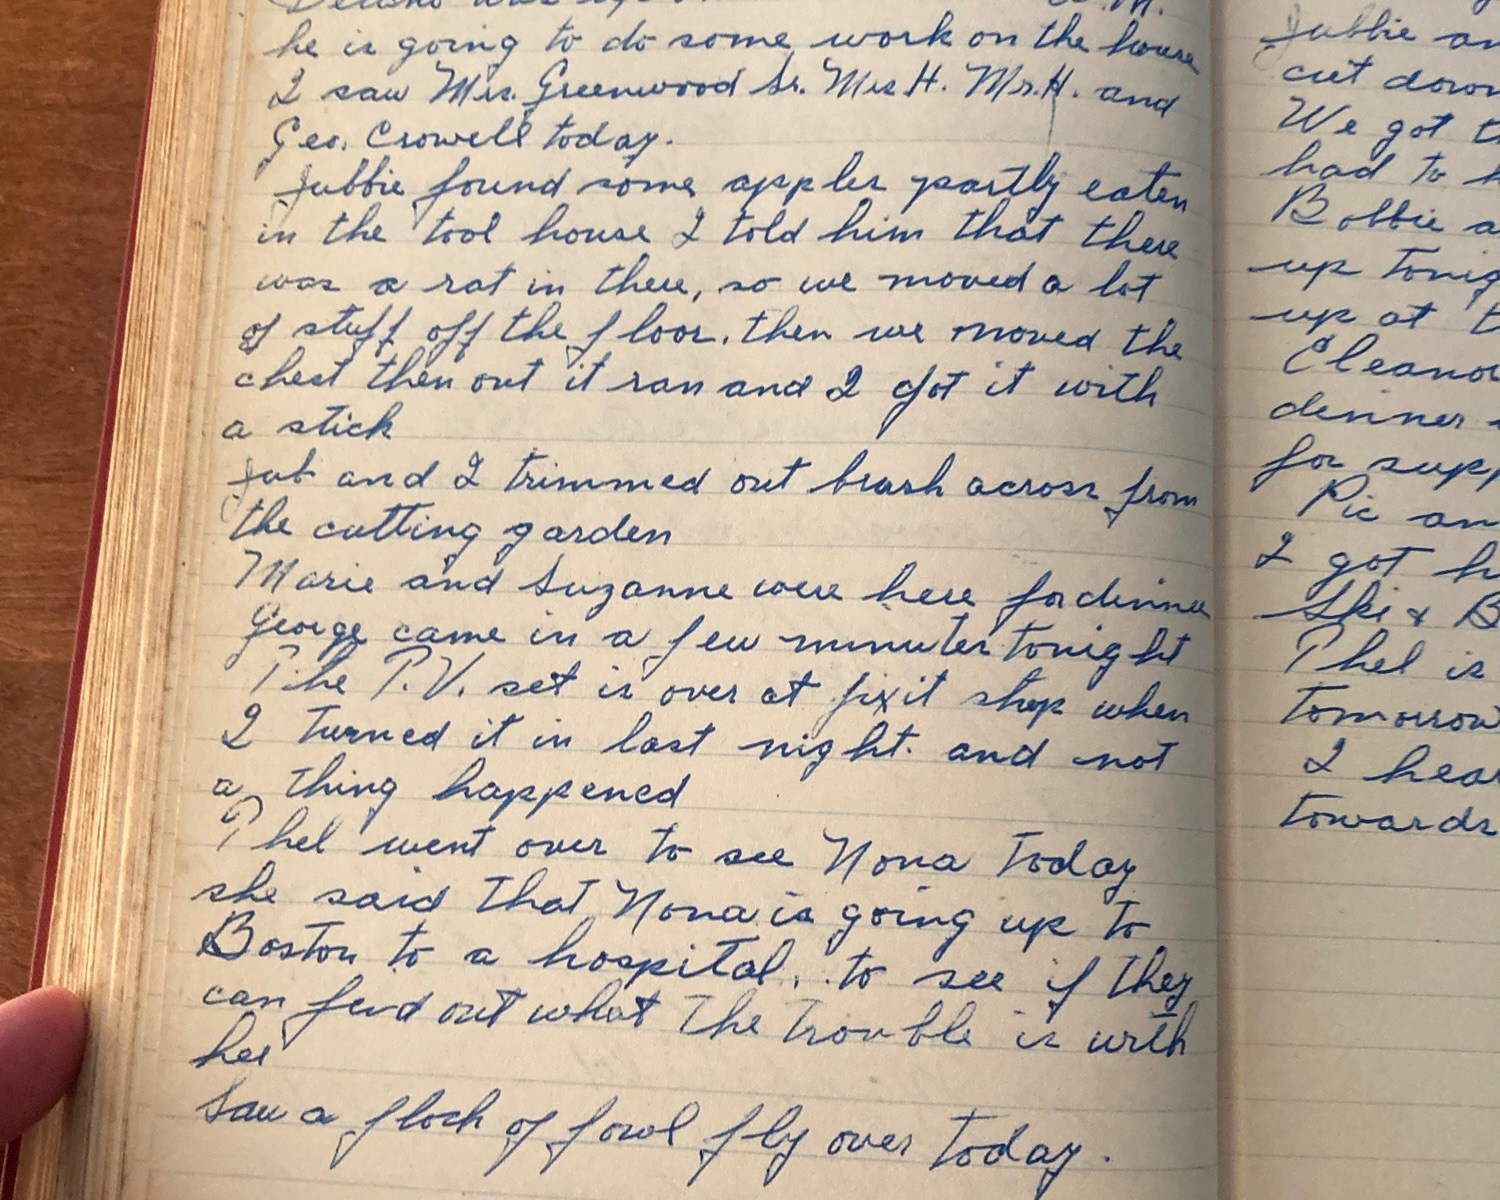 he is going to do some work on the house
I saw Mrs. Greenwood Sr. Mrs H. Mr. H. and
Geo. Crowell today.
Jubbie found some apples partly eaten
in the tool house I told him that there
was a rat in there, so we moved a lot
of stuff off the floor. then we moved the
chest then out it ran and I got it with
a stick
Jub and I trimmed out brush across from
the cutting garden
Marie and Suzanne were here for dinner
George came in a few minutes tonight
The T.V. set is over at fixit shop when
I turned it in last night. and not
a thing happened
Phel went over to see Nona today
she said that Nona is going up to
Boston to a hospital. to see if they
can find out what the trouble is with
her
Saw a flock of fowl fly over today.
Jubbie an
cut down
We got th
had to h
Bobbie a
up tonig
up at t
Eleanor
dinner
for supp
Pic an
I got h
Ski & B
Phel is
tomorrow
I hea
towards